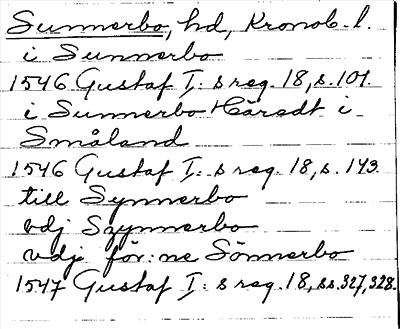 Sunnerbo, hd, Kronob. l.
i Sunnerbo
1546 Gustaf I: s reg. 18, s. 101.
i Sunnerbo Häradt i
Småland
1546 Gustaf I: s reg. 18, s. 143.
till Synnerbo
vdj Szynnerbo
vdj för:ne Sönnerbo
1547 Gustaf I: s reg. 18, ss. 327, 328.